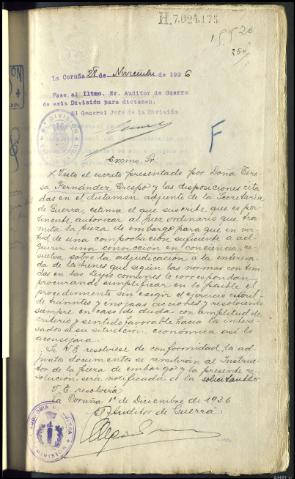 H.7.024.175
La Coruña 28 de Noviembre de 1936
Pase al Iltmo. Sr. Auditor de Guerra
de esta División para dictamen.
El General Jefe de la División
F
Excmo. Sr.
Visto el escrito presentado por Doña Tere
sa Fernández Crespo y las disposiciones cita
das en el dictamen adjunto de la Secretaría
de Guerra, estima el que suscribe que es per
tinente autorizar al juez ordinario que tra
mita la pieza de embargo para que en vir
tud de una comprobación suficiente a ad
quirir una convicción en conciencia re
suelva sobre la adjudicación a la interesa
da de los bienes que según las normas conteni
das en las leyes
procurando simplificar en lo posible el
procedimiento sin exigir el rigorismo
de trámites y resolviendo
siempre en caso de duda con amplitud de
criterio y sentido favorable hacia la intere
sada si su situación económica así lo
aconsejara.
Si V.E. resolviese de conformidad, la ad
junta documenta se remitirán al Instruc
tor de la pieza de embargo y la presente re
solución será notificada a la solicitante.
V.E. resolverá.
La Coruña 1º de Diciembre de 1936
El Auditor de Guerra